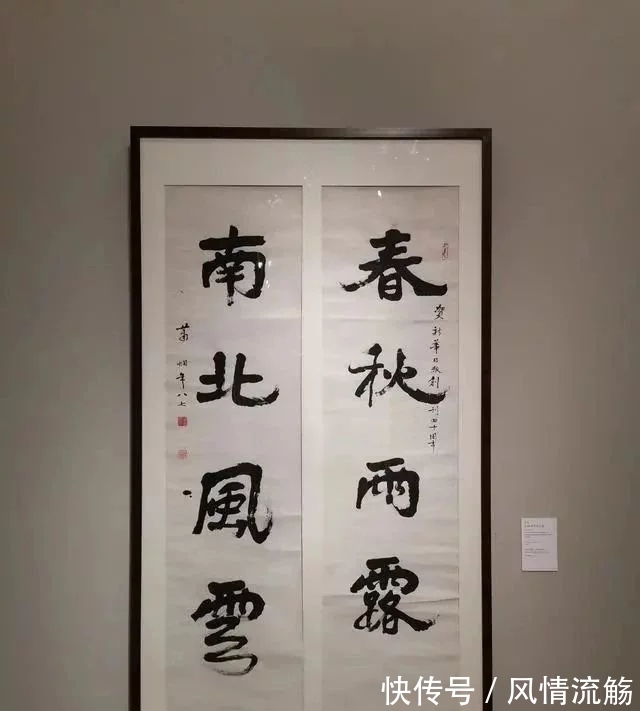 春秋雨露
賀新華日报創刊四十周年
南北風雲
蕭嫻年八七
快传号 / 风情流觞